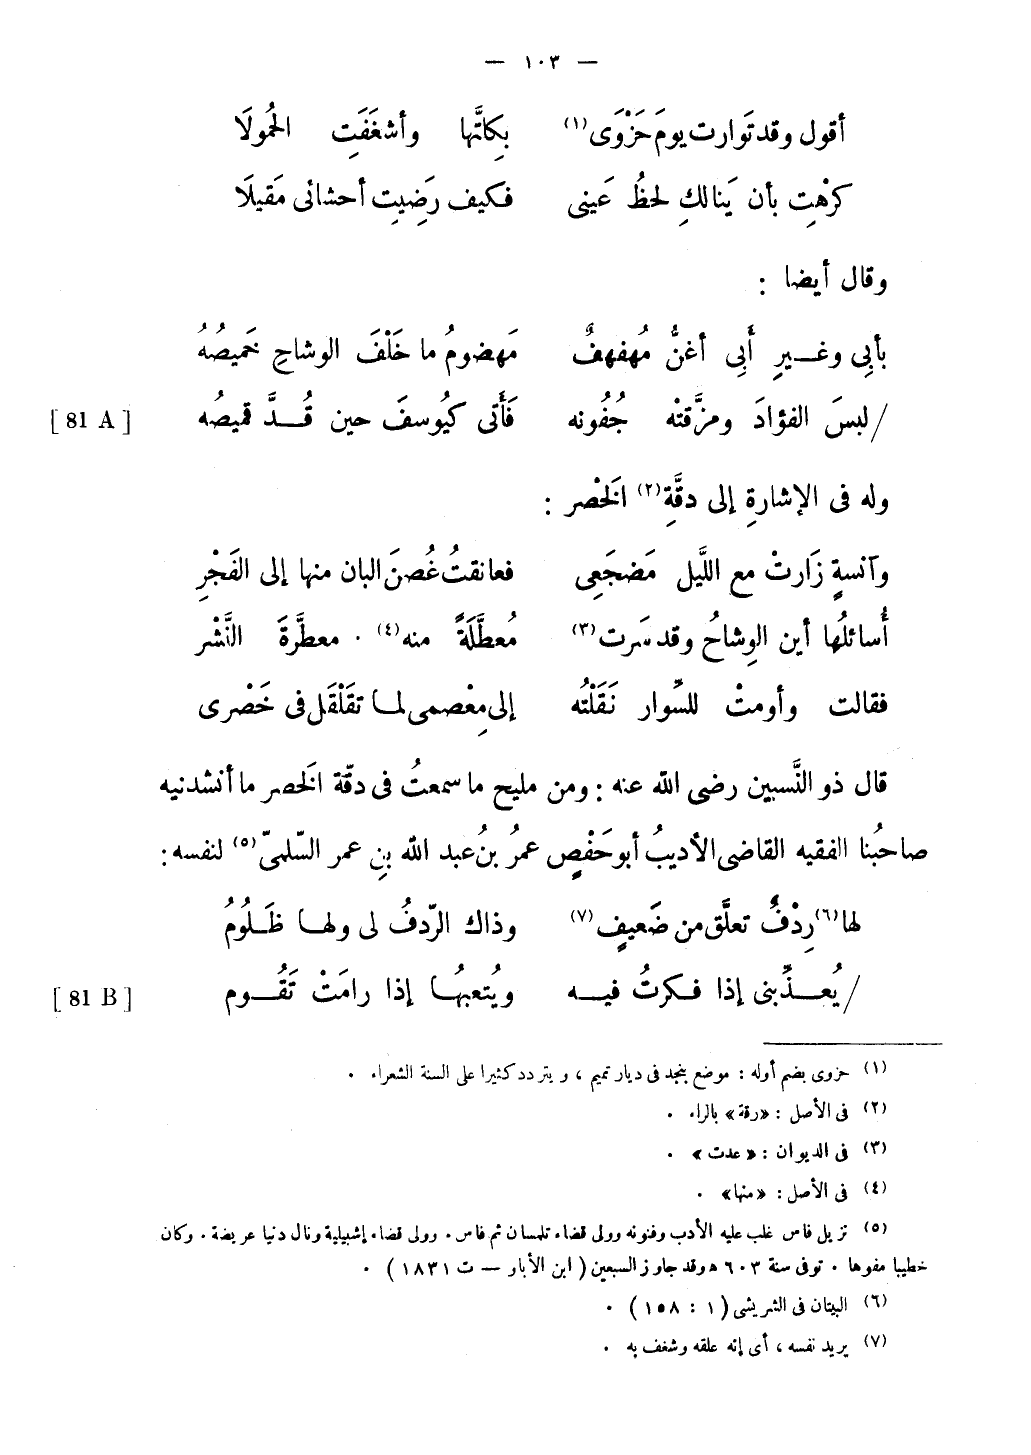 — ١٠٣ —
أقول وقد تَوارت يومَ حَزْوَى (١) بِكِلَّتها وأشغَفَتِ الحُمولَا
كرهْتِ بأن يَنالكِ لحظُ عَينى فكيف رَضِيتِ أحشائى مَقيلَا
وقال أيضا :
بأبِى وغــيرِ أَبِى أغنُّ مُهفهفٌ مَهضومُ ما خَلْفَ الوشاحِ خَميصُهُ
/ لبسَ الفؤادَ ومزَّقتْه جُفُونه فَأَتى كَيُوسفَ حين قُــدَّ قميصُه [ 81 A ]
وله فى الإشارةِ إلى دقَّةِ (٢) الخَصْر :
وآنسةٍ زَارتْ مع اللَّيل مَضجَعِى فعانقتُ غُصنَ البان منها إلى الفَجْرِ
أُسائلُها أين الوِشاحُ وقد سَرت (٣) مُعطَّلَةً منه (٤) . معطَّرةَ النَّشْر
فقالت وأومتْ للسِّوار نَقَلْتُه إلى مِعْصمى لمــا تقَلْقَل فى خَصْرى
قال ذو النَّسبين رضى الله عنه : ومن مليح ما سمعتُ فى دقّة الخَصر ما أنشدنيه
صاحبُنا الفقيه القاضى الأديبُ أبو حَفْصٍ عمرُ بنُ عبد الله بنِ عمر السّلمىّ (٥) لنفسه :
لها (٦) رِدْفٌ تعلَّق من ضَعيفٍ (٧) وذاك الرّدفُ لى ولهــا ظَــلُومُ
/ يُعــذِّبنى إذا فــكرتُ فيــه ويُتعبهُــا إذا رامَتْ تَقُــوم [ 81 B ]
(١) حزوى بضم أوله : موضع بنجد فى ديار تميم ، ويتردد كثيرا على السنة الشعراء .
(٢) فى الأصل : «رقة» بالراء .
(٣) فى الديوان : «عدت» .
(٤) فى الأصل : «منها» .
(٥) نزيل فاس غلب عليه الأدب وفنونه وولى قضاء تلمسان ثم فاس . وولى قضاء إشبيلية ونال دنيا عريضة . وكان
خطيبا مفوها . توفى سنة ٦٠٣ هـ وقد جاوز السبعين ( ابن الأبار — ت ١٨٣١ ) .
(٦) البيتان فى الشريشى ( ١ : ١٥٨ ) .
(٧) يريد نفسه ، أى إنه علقه وشغف به .